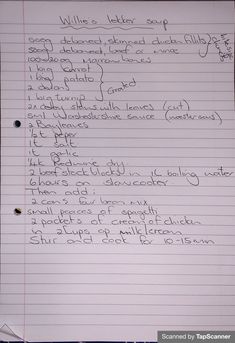 Willie's lekker soup
500g deboned, skinned chicken fillits
500g deboned, beef or mince
1000g Marrow bones
1 big carrot
1 big potato
2 onions
Grated
1 big turnip
2x celery stems with leaves (cut)
5ml Worchestershire sauce
2 Bayleaves
½t peper
1t salt
1t garlic
Redwine dry
2 beef stock blocks in 1L boiling water
6 hours on slowcooker.
Then add:
2 cans four bean mix
small peaces of spagetti
2 packets of cream of chicken
in 2 cups of milk/cream
Stur and cook for 10-15 min
Scanned by TapScanner